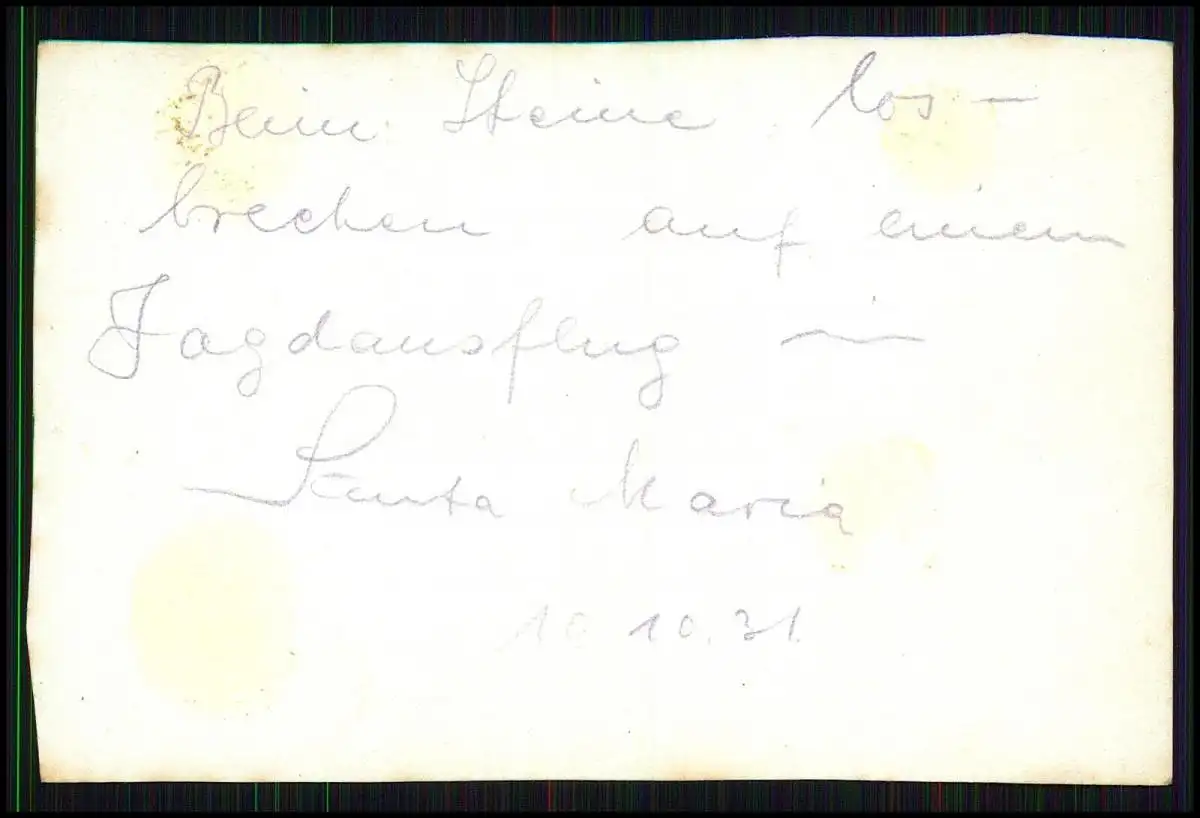 Beim Steine los-
brechen auf einem
Jagdausflug in
Santa Maria
10 10.31.